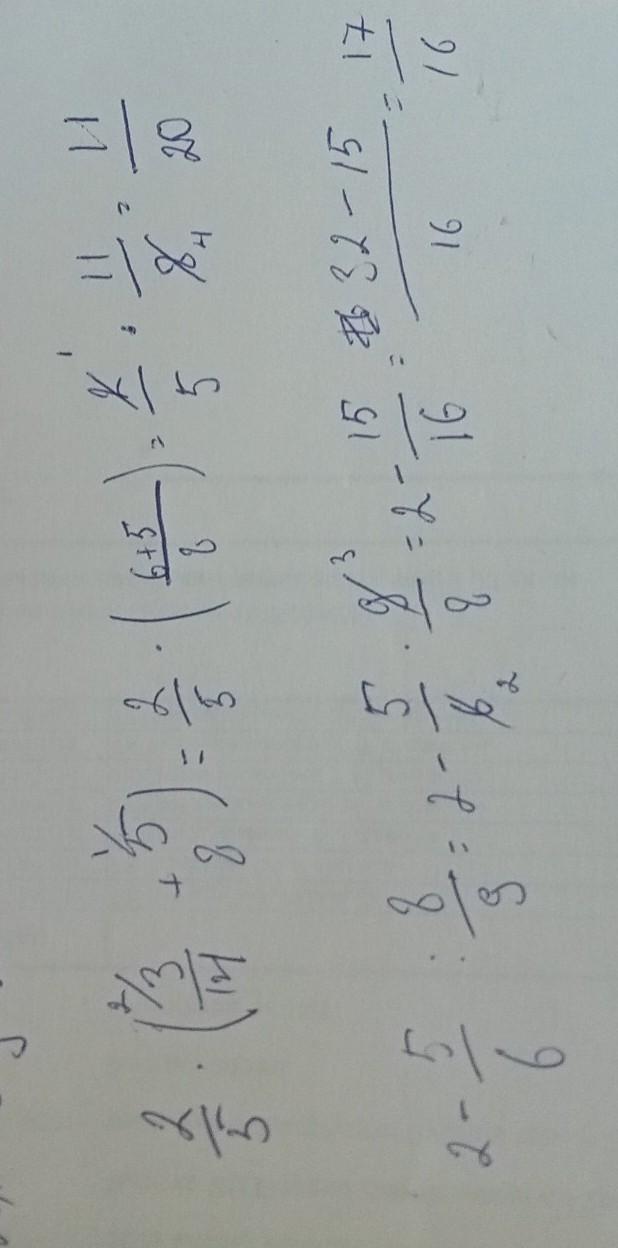 2/5 · (²⁄3/14 + ¹⁄5/8) = 2/5 · ((6+5)/8) = 2¹/5 · 11/8₄ = 11/20
2 - 5/6 : 8/9 = 2 - 5/6₂ · 9³/8 = 2 - 15/16 = (32 - 15)/16 = 17/16